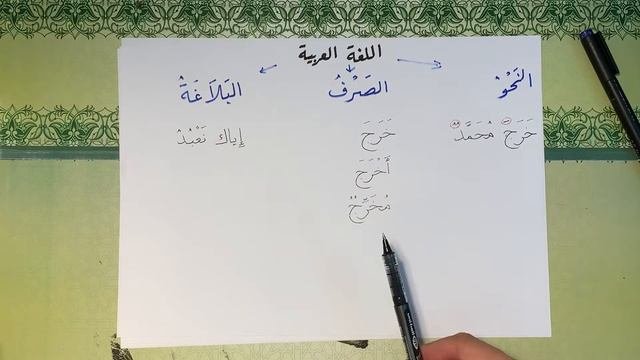 اللغة العربية
النَحْوُ
الصَرْفُ
البَلَاغَةُ
خَرَجَ مُحَمَّدٌ
خَرَجَ
إياك نَعْبُدُ
أَخْرَجَ
مُخَرِّجٌ